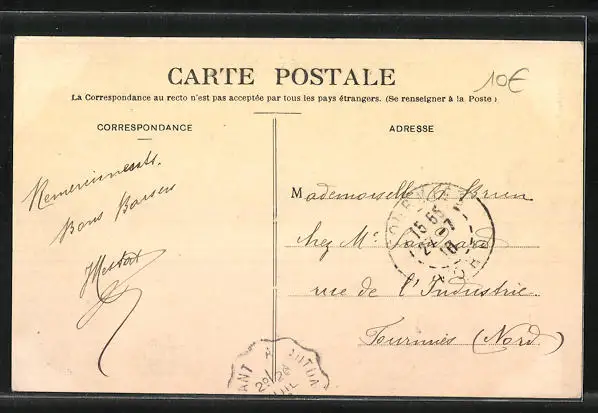 CARTE POSTALE
10€
La Correspondance au recto n'est pas acceptée par tous les pays étrangers. (Se renseigner à la Poste)
CORRESPONDANCE
ADRESSE
Remerciements.
Bons Baisers
Mademoiselle Brun
chez Mr
rue de l'Industrie
Fourmies (Nord)
15 55